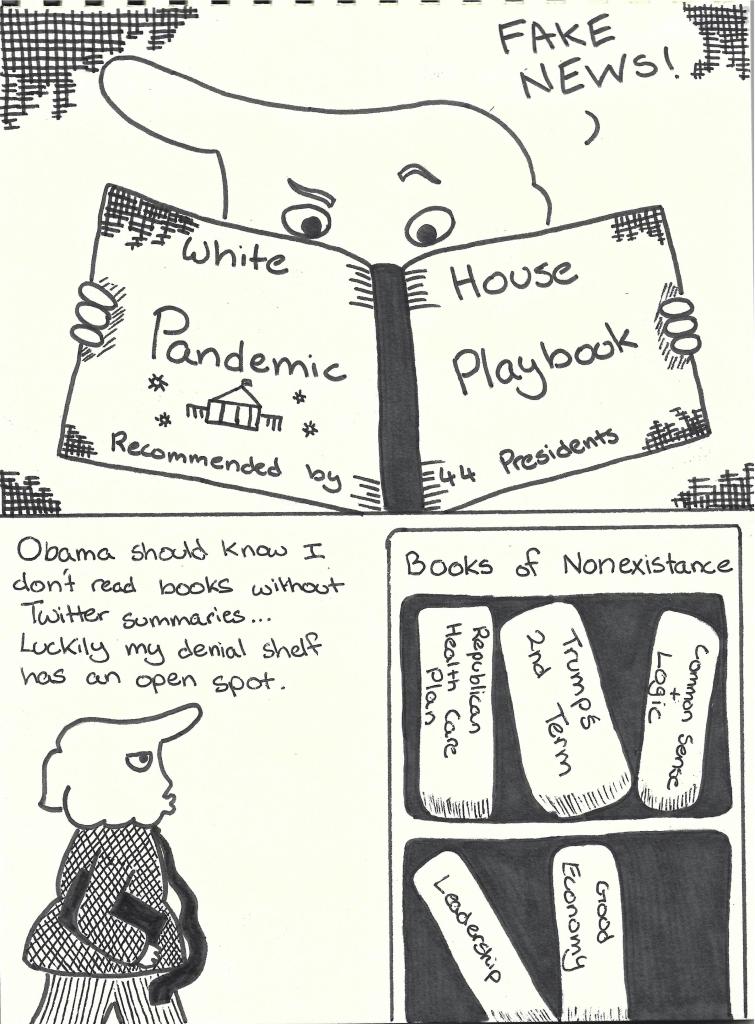 FAKE
NEWS!
White House
Pandemic Playbook
Recommended by 44 Presidents
Obama should know I
don't read books without
Twitter summaries...
Luckily my denial shelf
has an open spot.
Books of Nonexistance
Republican
Health Care
Plan
Trump's
2nd Term
Common Sense
+
Logic
Leadership
Good
Economy